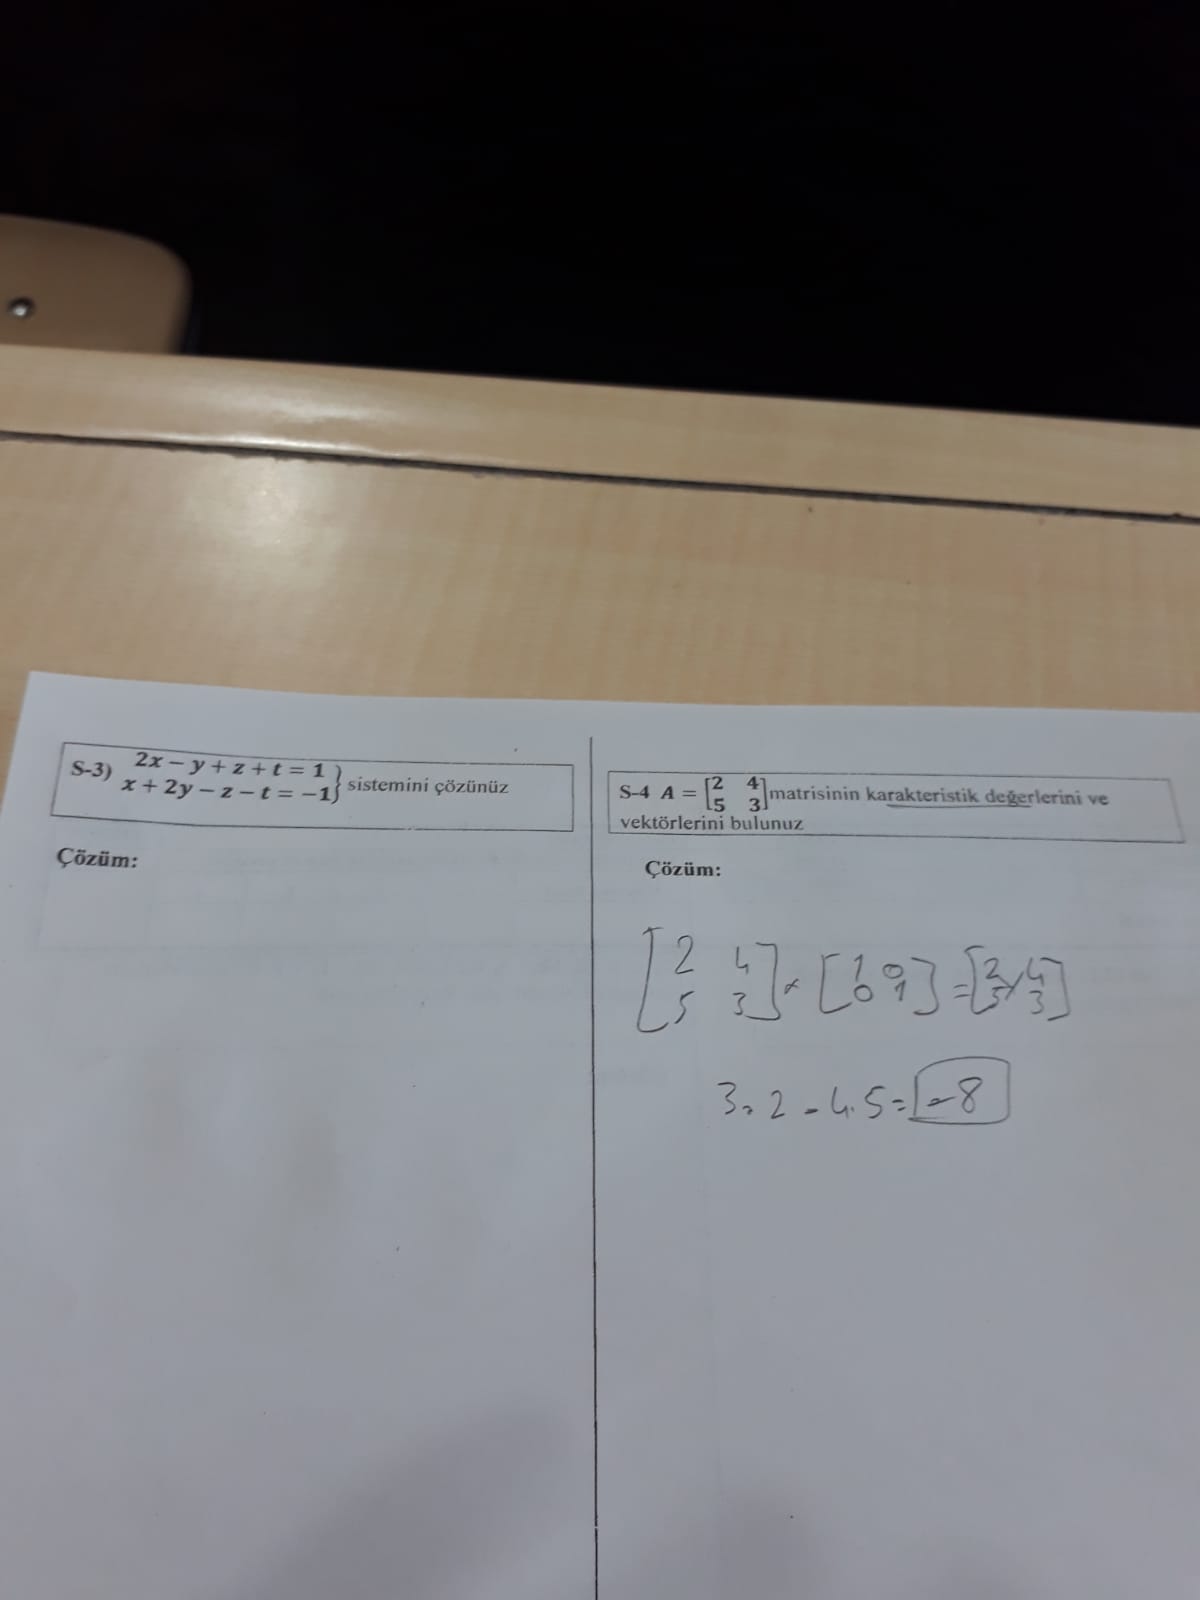 S-3) 2x − y + z + t = 1
x + 2y − z − t = −1} sistemini çözünüz
Çözüm:
S-4 A = [2 4
5 3] matrisinin karakteristik değerlerini ve
vektörlerini bulunuz
Çözüm:
[2 4
5 3] × [1 0
0 1] = [2 4
5 3]
3.2 - 4.5 = -8